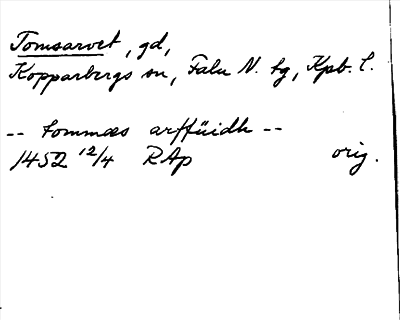 Tomsarvet, gd,
Kopparbergs sn, Falu N. tg, Kpb. l.
-- tommæs arffüidh --
1452 12/4 RAp orig.